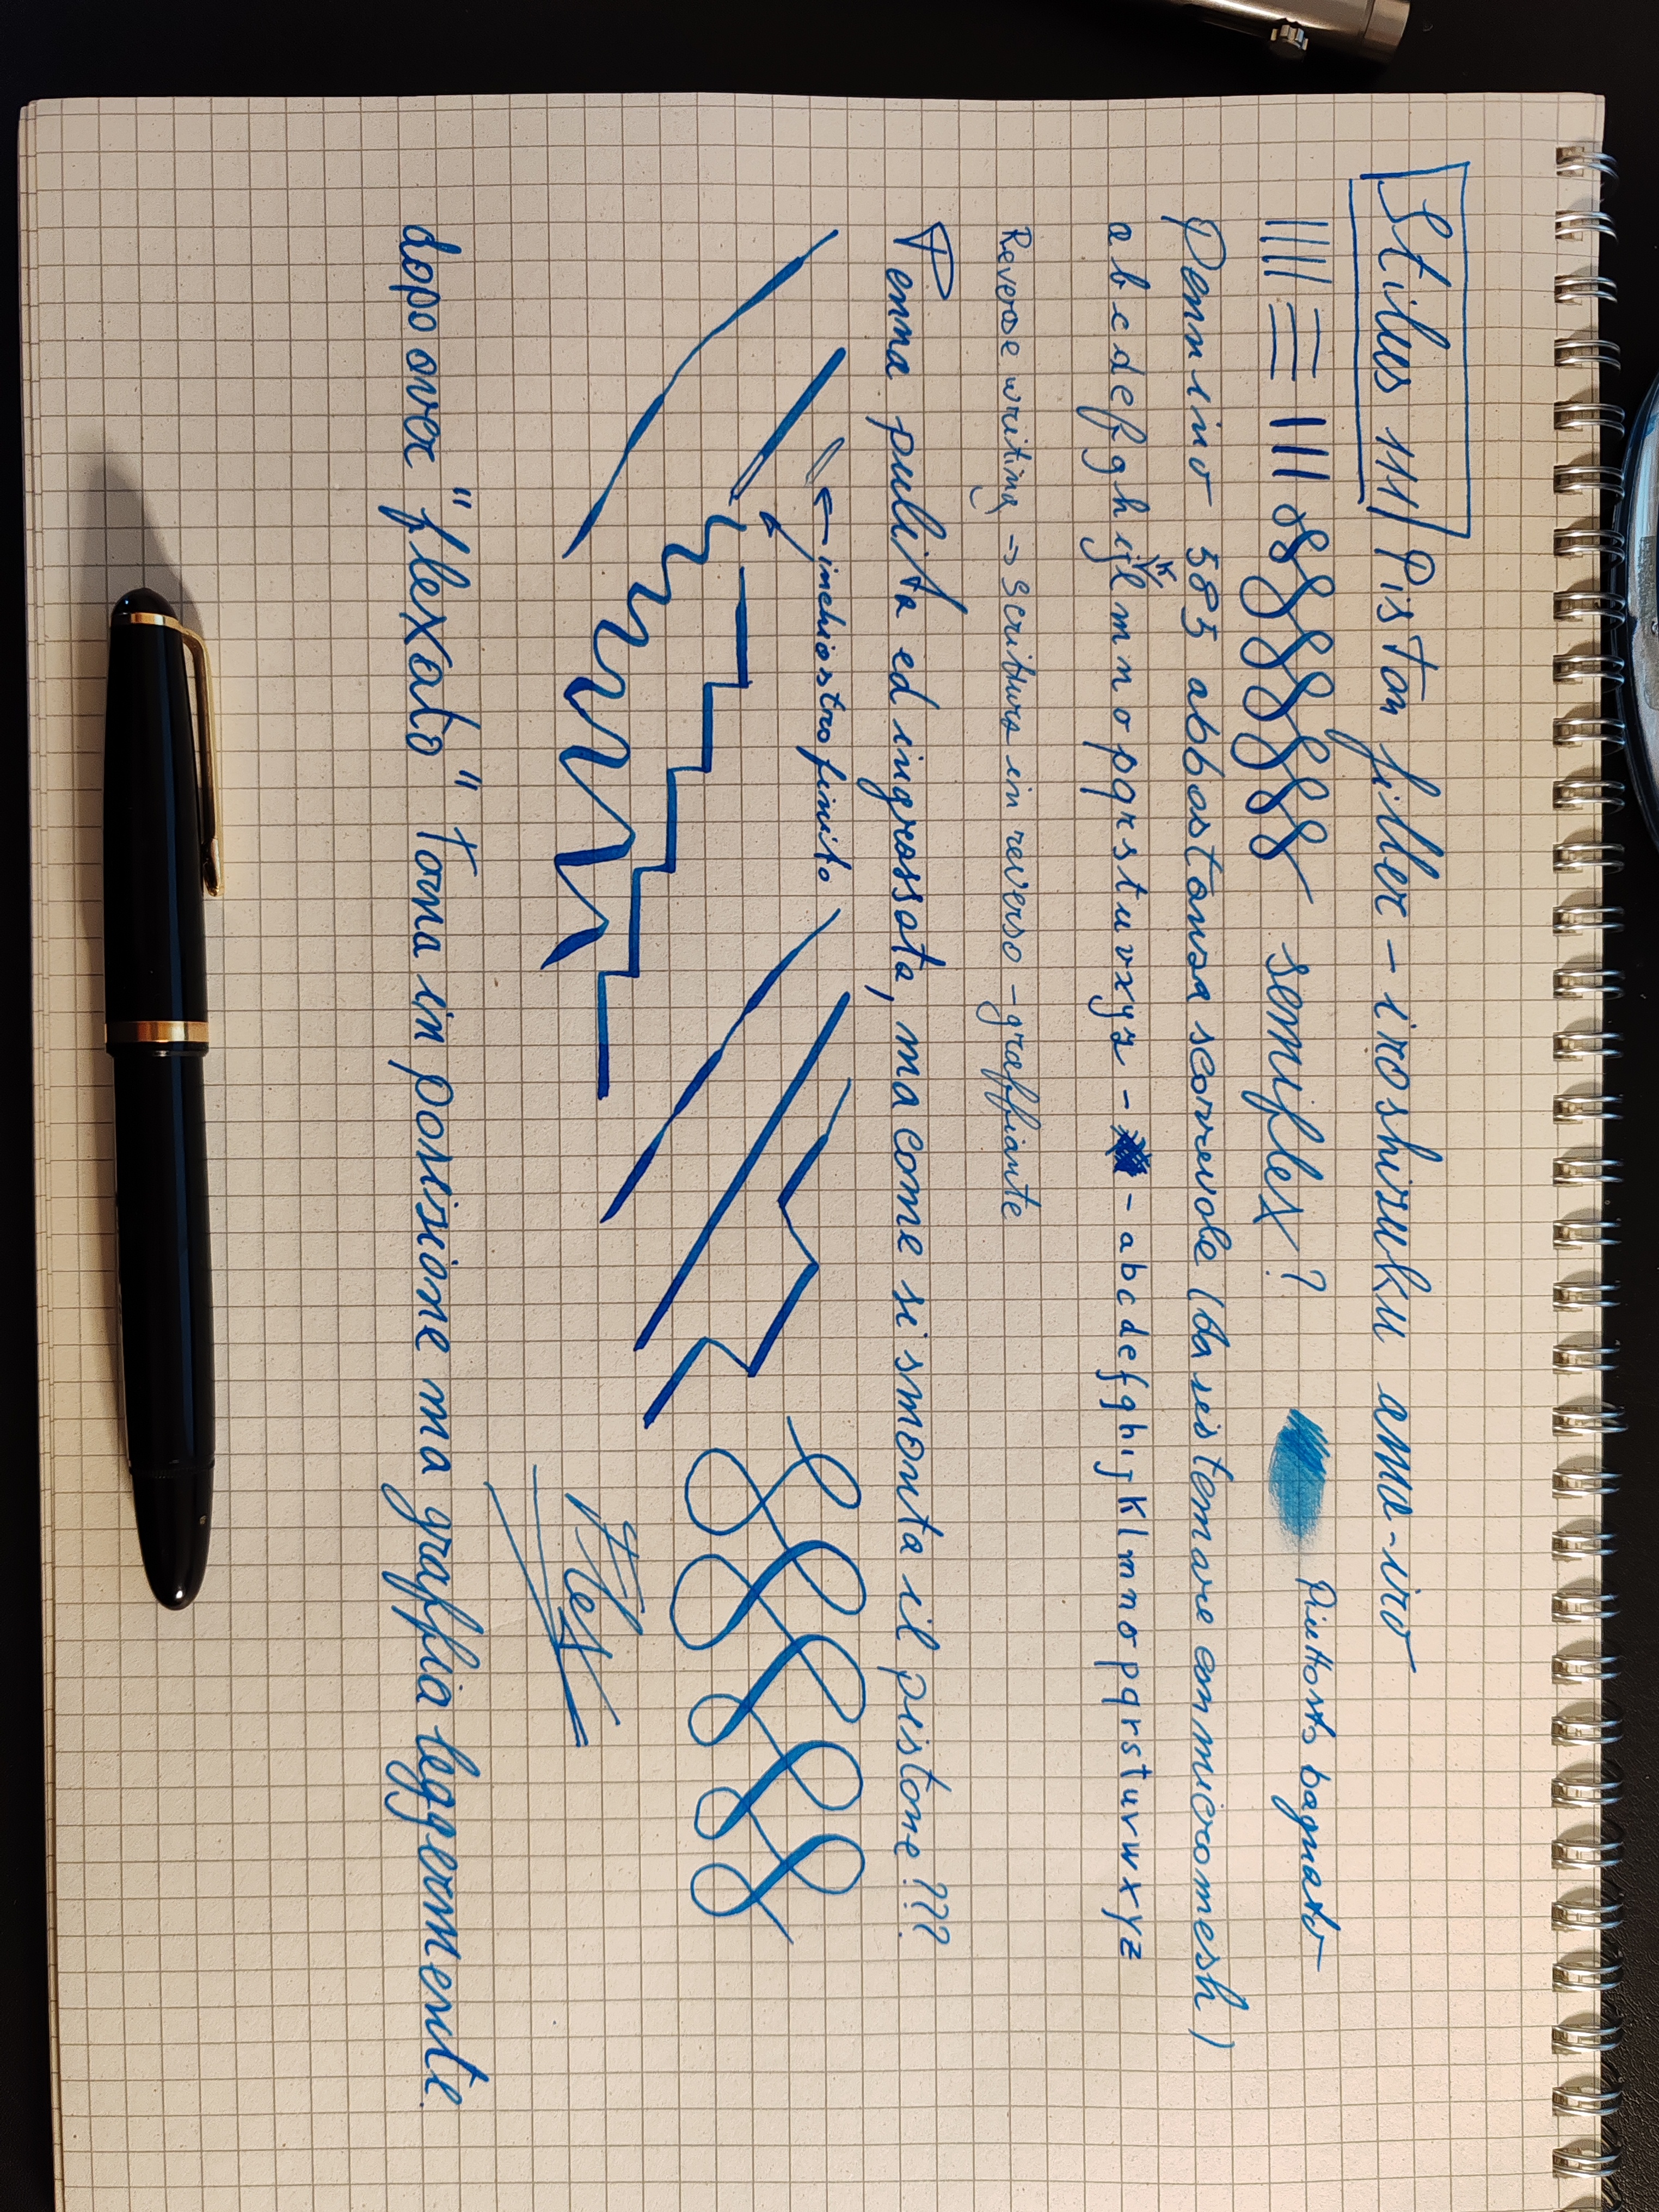 Stilus 111 Piston filler - iroshizuku ama-iro
semiflex? Piuttosto bagnato
Pennino 585 abbastanza scorrevole (da sistemare con micromesh)
k
a b c d e f g h i j l m n o p q r s t u v x y z - - a b c d e f g h i j k l m n o p q r s t u v w x y z
Reverse writing -> scrittura in reverso - graffiante
Penna pulita ed ingrassata, ma come si smonta il pistone???
<- inchiostro finito
Flex
dopo aver "flexato" torna in posizione ma graffia leggermente